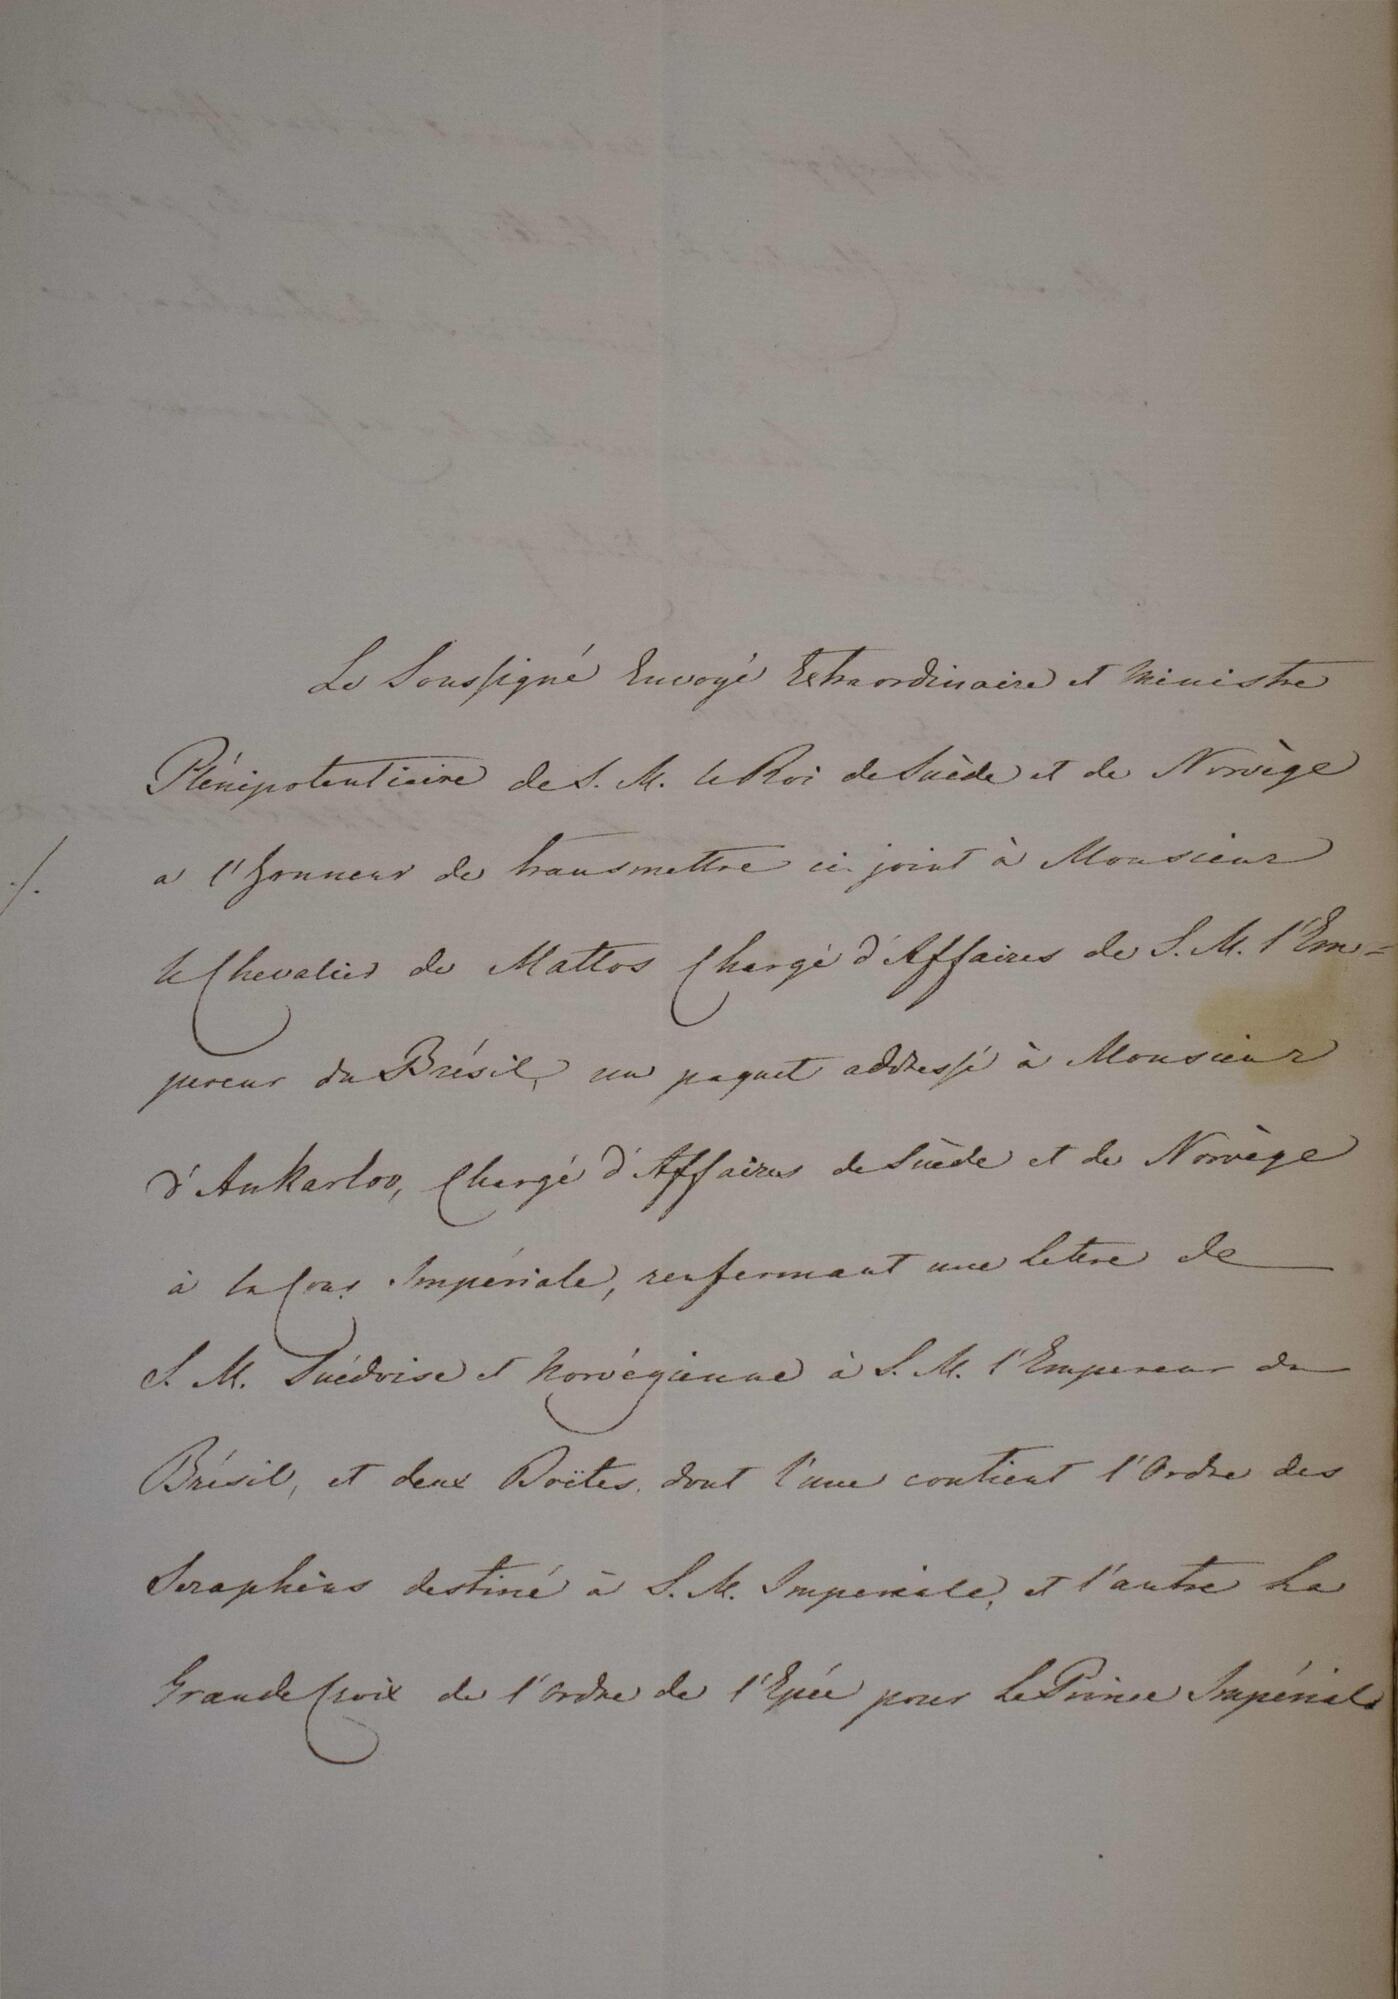 Le Soussigné Envoyé Extraordinaire et Ministre
Plénipotentiaire de S. M. le Roi de Suède et de Norvège
a l'honneur de transmettre ci-joint à Monsieur
./.
le Chevalier de Mattos Chargé d'Affaires de S. M. l'Em=
pereur du Brésil, un paquet addressé à Monsieur
d'Ankarloo, Chargé d'Affaires de Suède et de Norvège
à la Cour Impériale, renfermant une lettre de
S. M. Suédoise et Norvégienne à S. M. l'Empereur du
Brésil, et deux Boëtes, dont l'une contient l'Ordre des
Seraphins destiné à S. M. Imperiale, et l'autre la
Grande Croix de l'Ordre de l'Epée pour le Prince Impérial